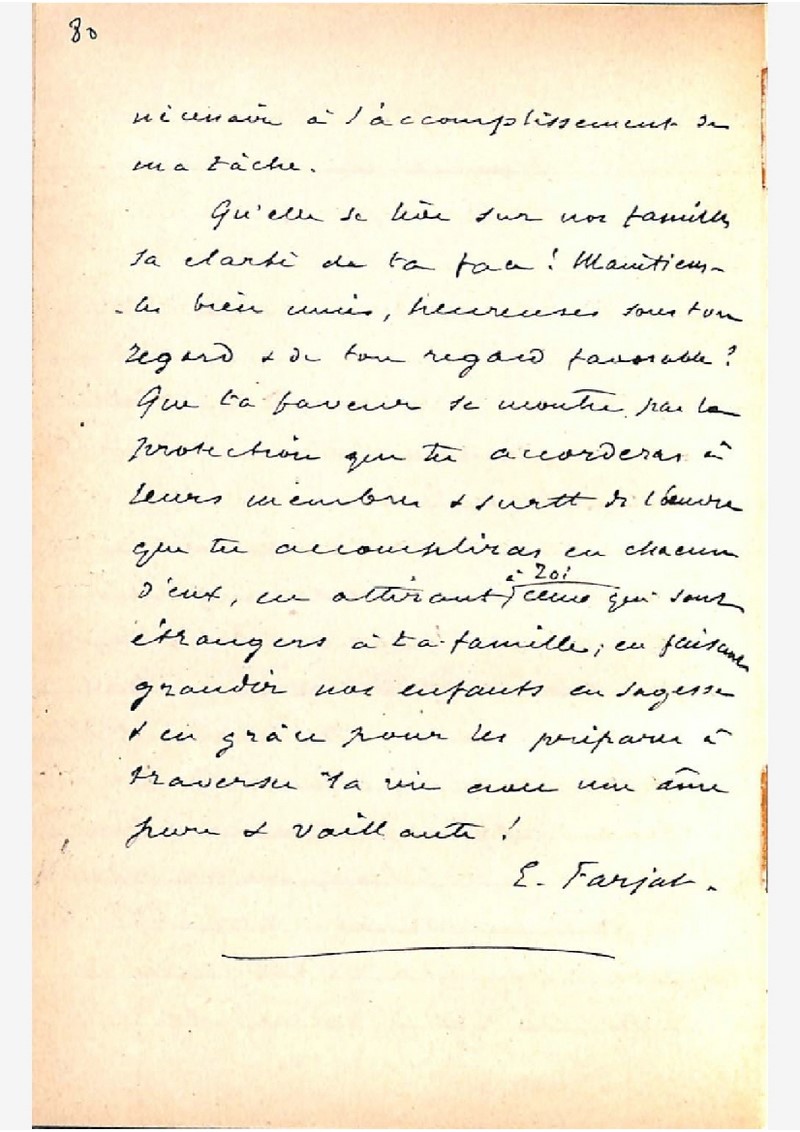 80
nécessaire à l'accomplissement de
ma tâche.
Qu'elle se lève sur nos familles
la clarté de ta face ! Maintiens-
-les bien unies, heureuses sous ton
regard & de ton regard favorable !
Que ta faveur se montre par la
protection que tu accorderas à
leurs membres & surtt de l'œuvre
que tu accompliras en chacun
à Toi
d'eux, en attirant ceux qui sont
étrangers à ta famille ; en faisant
grandir nos enfants en sagesse
& en grâce pour les préparer à
traverser la vie avec une âme
pure & vaillante !
E. Farjat.